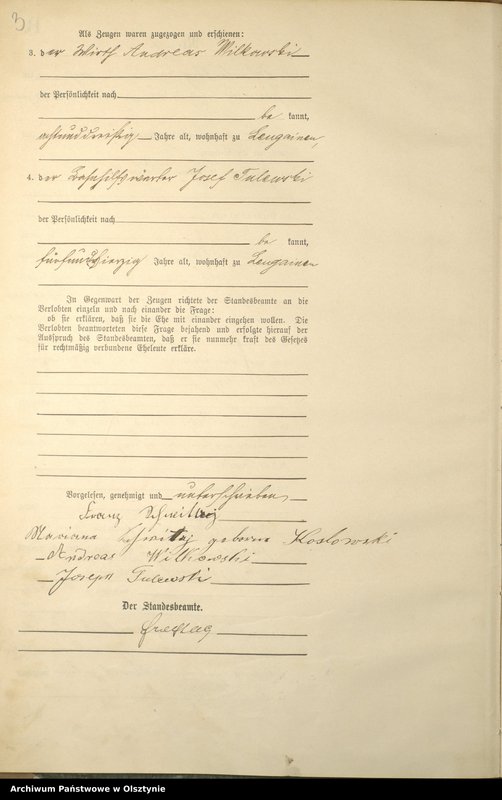 3
Als Zeugen waren zugezogen und erschienen:
3. der Wirth Andreas Wilkowski
der Persönlichkeit nach
be kannt,
achtunddreißig Jahre alt, wohnhaft zu Lengainen,
4. der Bahnhilfswärter Josef Tulewski
der Persönlichkeit nach
be kannt,
fünfundvierzig Jahre alt, wohnhaft zu Lengainen
In Gegenwart der Zeugen richtete der Standesbeamte an die
Verlobten einzeln und nach einander die Frage:
ob sie erklären, daß sie die Ehe mit einander eingehen wollen. Die
Verlobten beantworteten diese Frage bejahend und erfolgte hierauf der
Ausspruch des Standesbeamten, daß er sie nunmehr kraft des Gesetzes
für rechtmäßig verbundene Eheleute erkläre.
Vorgelesen, genehmigt und unterschrieben
Franz
Mariana geborene Koslowski
Andreas Wilkowski
Joseph Tulewski
Der Standesbeamte.
Freitag
Archiwum Państwowe w Olsztynie